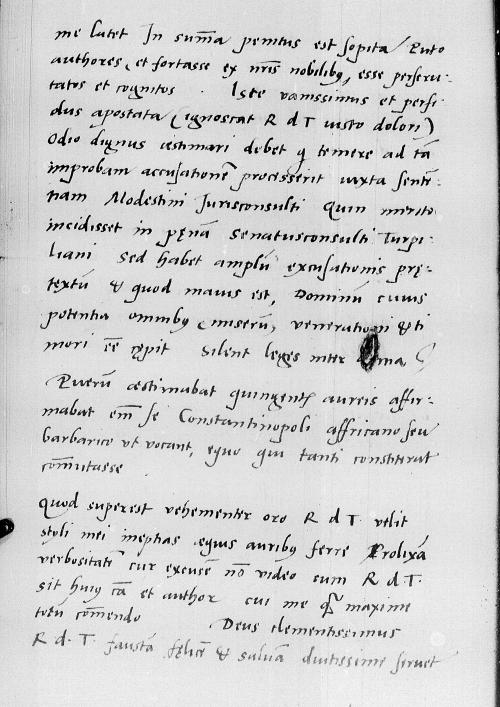 me latet In sum̄a penitus est sopita Puto
authores, et fortasse ex nr̄is nobilibꝫ, esse perscru-
tatos et cognitos. Iste vanissimus et perfi
dus apostata (ignoscat R d T iusto dolori)
Odio dignus æstimari debet q̨ temere ad tā
improbam accusationē processerit iuxta sentē-
tiam Modestini Jurisconsulti Quin merito
incidisset in pęnā Senatusconsulti Turpi-
liani Sed habet amplū excusationis prę-
textū & quod maius est, Dominū cuius
potentia omnibꝫ (miserū) venerationi & ti
mori eē cępit Silent leges inter arma
Puerū æstimabat quingentis aureis affir-
mabat em̄ se Constantinopoli affricano seu
barbarico ut vocant, equo qui tanti constiterat
com̄utasse
Quod superest vehementer oro R d T. velit
styli mei ineptias æquis auribꝫ ferre Prolixā
verbositatē cur excusē nō video cum R d T.
sit huiꝰ cā et author cui me q̄ maxime
totū com̄endo Deus clementissimus
R. d. T. faustā fęlicē & saluā diutissime seruet